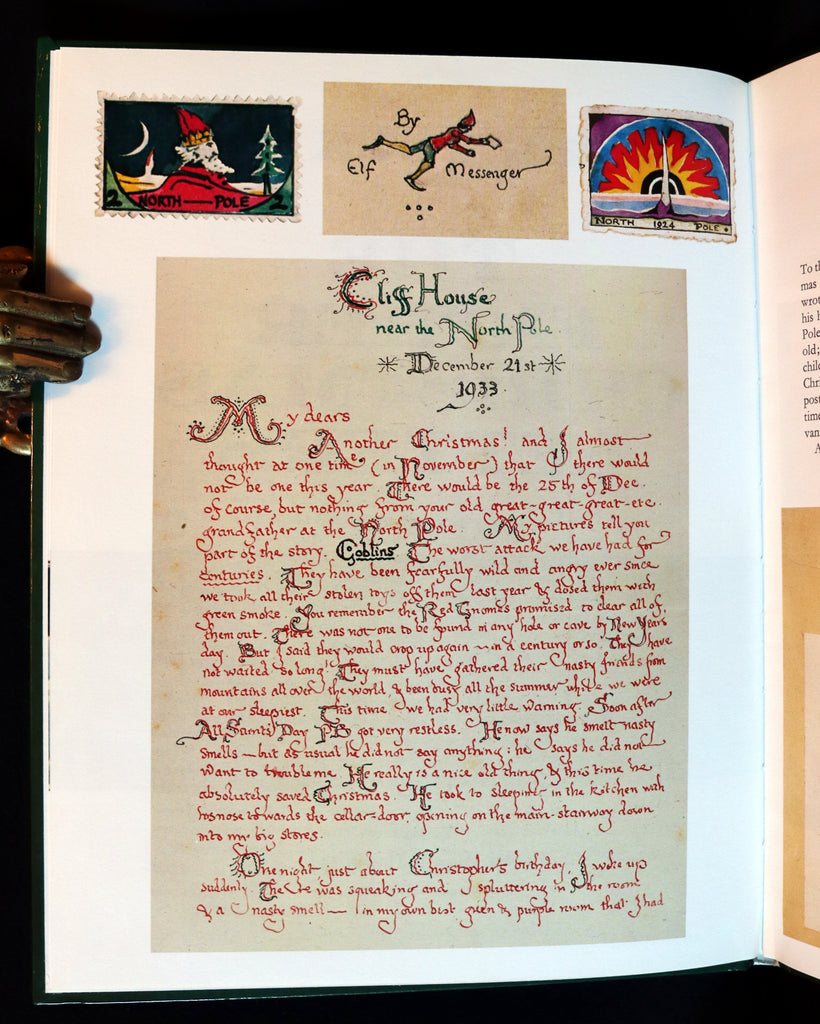 2 NORTH — POLE 2
By
Elf Messenger
NORTH 1924 POLE
Cliff House
near the North Pole
December 21st
1933
My dears
Another Christmas! and I almost
thought at one time (in November) that there would
not be one this year. There would be the 25th of Dec.
of course, but nothing from your old great-great-great-etc.
grandfather at the North Pole. My pictures tell you
part of the story. Goblins. The worst attack we have had for
centuries. They have been fearfully wild and angry ever since
we took all their stolen toys off them last year & dosed them with
green smoke. You remember the Red Gnomes promised to clear all of
them out. There was not one to be found in any hole or cave by New Years
day. But I said they would crop up again — in a century or so. They have
not waited so long! They must have gathered their nasty friends from
mountains all over the world, & been busy all the summer while we were
at our sleepiest. This time we had very little warning. Soon after
All Saints Day PB got very restless. He now says he smelt nasty
smells — but as usual he did not say anything: he says he did not
want to trouble me. He really is a nice old thing, & this time he
absolutely saved Christmas. He took to sleeping in the kitchen with
his nose towards the cellar-door, opening on the main-stairway down
into my big stores.
One night just about Christopher's birthday, I woke up
suddenly. There was squeaking and spluttering in the room
& a nasty smell — in my own best green & purple room that I had
To th
mas
wrot
his
Pole
old;
chil
Chri
post
time
van
A